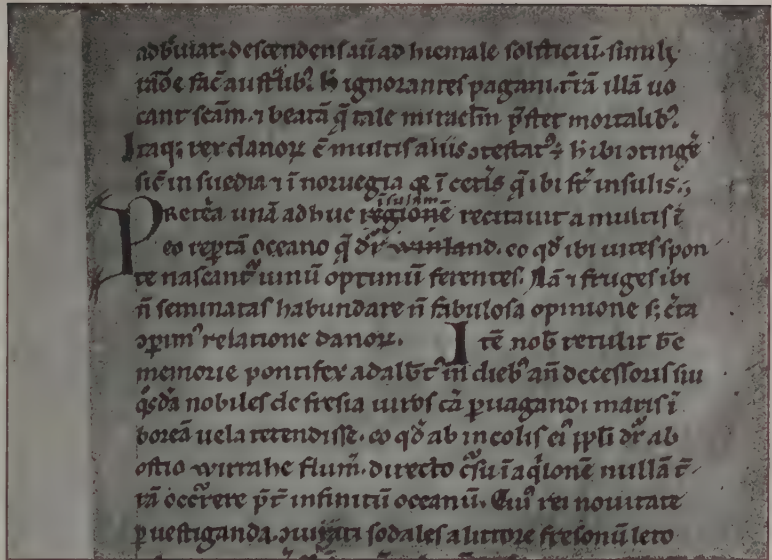 adbͬuiat. descendens aū ad hiemale solsticiū. simili
tꝺ̄īe fac̄ austͣlibꝰ. h̄ ignorantes pagani. tͬrā illā uo
cant sc̄am. ⁊ beatā q̄ tale miracl̄m p̄stet mortalibꝰ.
Itaqꝫ rex danoꝝ ē multis aliis ↄtestatꝰ; h̄ ibi ↄtingͤe
sic̄ in suedia ⁊ ī noruegia ⁊ ī cetͥs q̄ ibi st̄ insulis.;
Pretͤea unā adhuc regionē recitauit a multis ī
insulam
eo rep̱tā oceano q̄ dͬ winland. eo qd̄ ibi uites spon
te nascantᷣ uinū optimū ferentes. Nā ⁊ fruges ibi
n̄ seminatas habundare n̄ fabulosa opinione sꝫ c̄ta
ↄp̱imꝰ relatione danoꝝ. Itē nob̄ retulit bͤe
memorie pontifex adalb̄t ī dieb' an̄decessoris sui
q̊sdā nobiles de fresia uiros cā ꝑuagandi maris ī
boreā uela tetendisse. eo qd̄ ab incolis eiꝰ ppl̄i dͬ ab
ostio wirrahe flum̄. directo c̄su ī aq̇lonē nullā t̄
rā occͬrere p̄t̄ infinitū oceanū. Cuiꝰ rei nouitate
ꝑuestiganda. ↄiurati sodales a littore fresonū leto